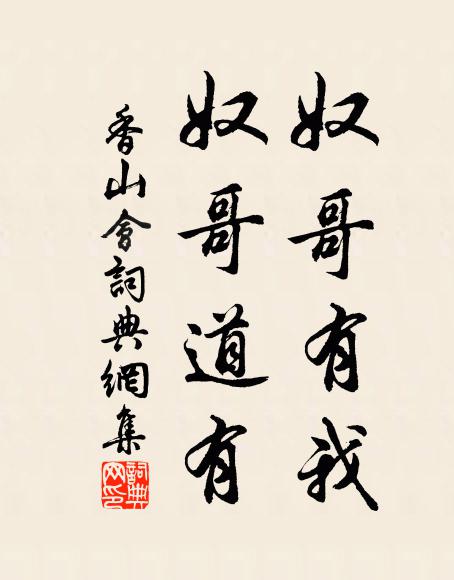 奴哥有我
奴哥道有
香山會詞典網集
詞典網印